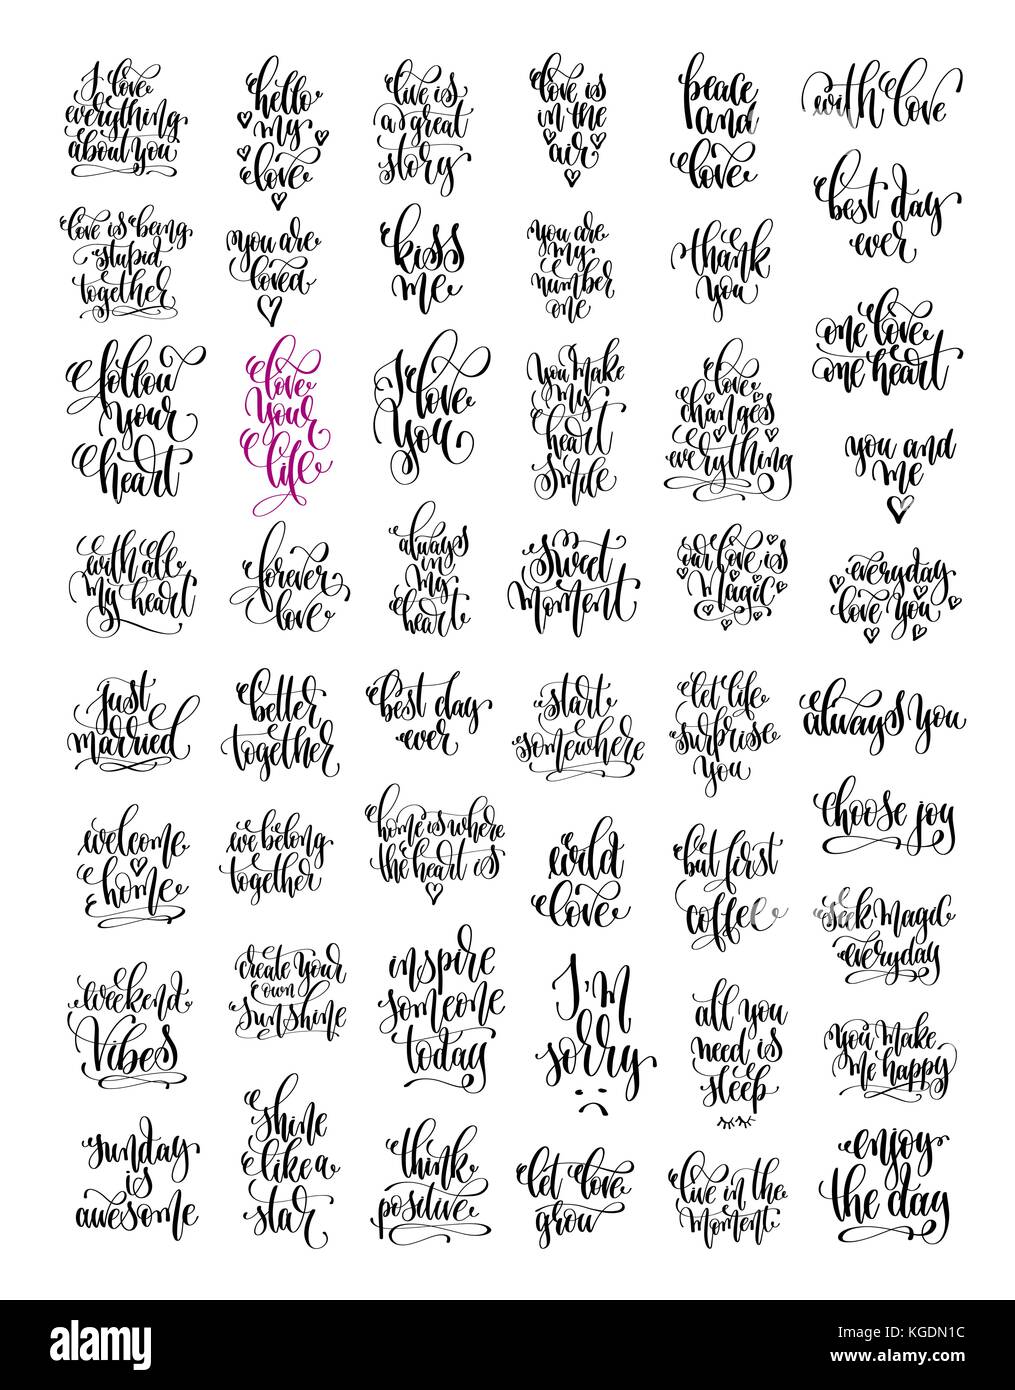 I love
everything
about you
hello
my
love
live is
a great
story
love is
in the
air
peace
and
love
with love
best day
ever
love is being
stupid
together
you are
loved
kiss
me
you are
my
number
one
thank
you
one love
one heart
follow
your
heart
love
your
life
I love
you
you make
my
heart
smile
love
changes
everything
you and
me
with all
my heart
forever
love
always
in
my
heart
sweet
moment
our love is
magic
everyday
love you
just
married
better
together
best day
ever
start
somewhere
let life
surprise
you
always you
choose joy
welcome
home
we belong
together
home is where
the heart is
wild
love
but first
coffee
seek magic
everyday
weekend
vibes
create your
own
sunshine
inspire
someone
today
I'm
sorry
all you
need is
sleep
you make
me happy
sunday
is
awesome
shine
like a
star
think
positive
let love
grow
live in the
moment
enjoy
the day
alamy
Image ID: KGDN1C
www.alamy.com